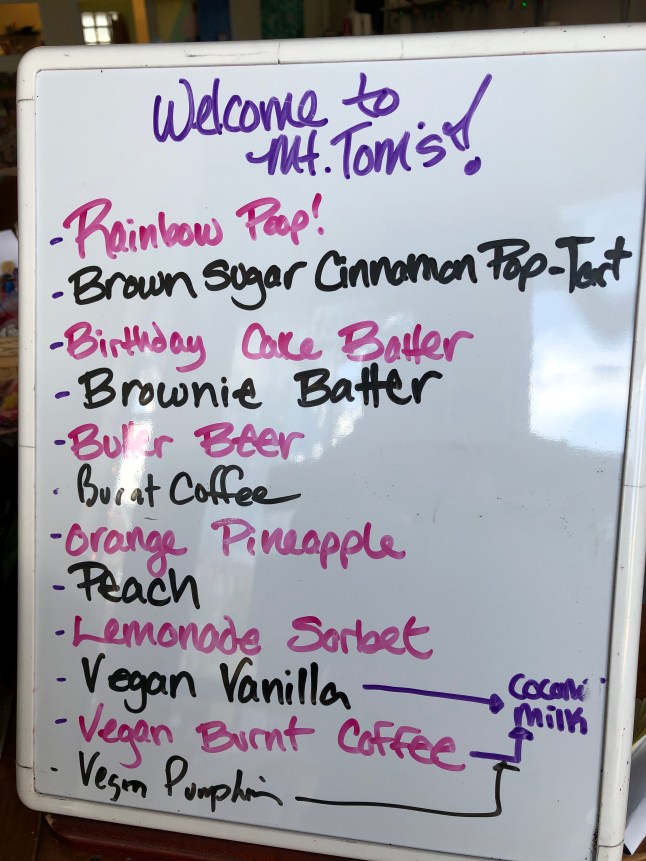 Welcome to
Mt. Tom's!
- Rainbow Poop!
- Brown Sugar Cinnamon Pop-Tart
- Birthday Cake Batter
- Brownie Batter
- Butter Beer
- Burnt Coffee
- Orange Pineapple
- Peach
- Lemonade Sorbet
- Vegan Vanilla
Coconut
milk
- Vegan Burnt Coffee
- Vegan Pumpkin